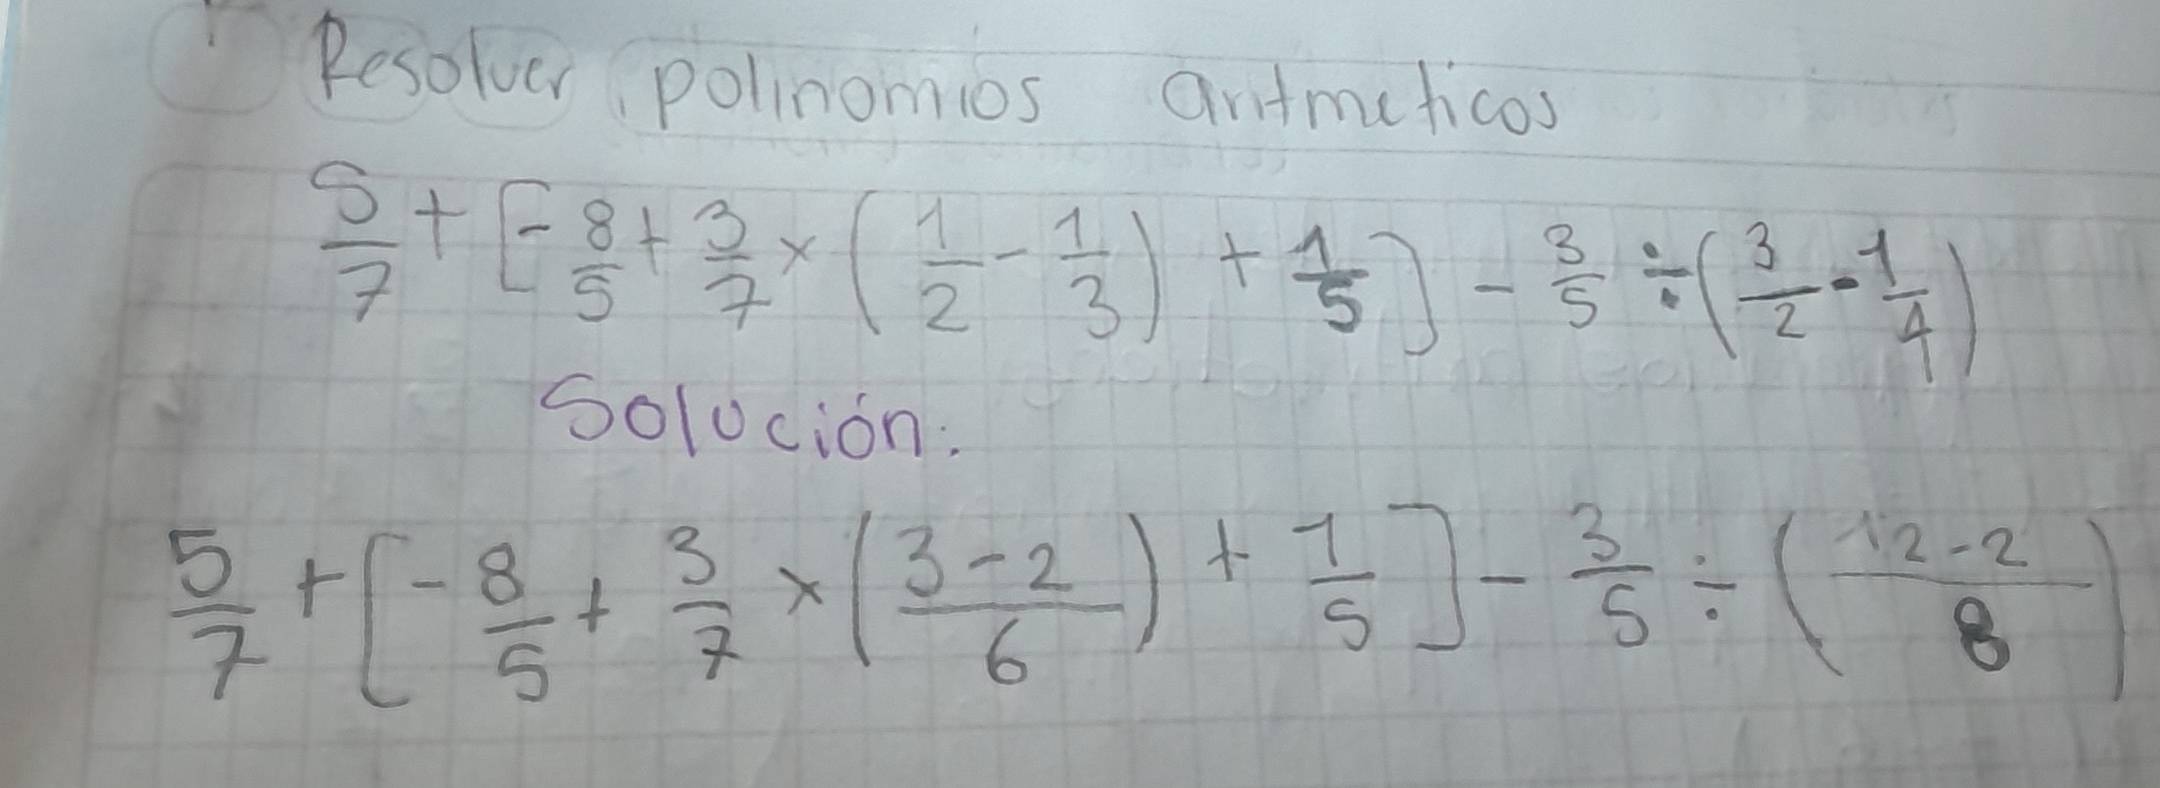 Resolver polinomios aritmeticos
5/7 + [-8/5 + 3/7 × (1/2 - 1/3) + 1/5] - 3/5 ÷ (3/2 - 1/4)
Solución:
5/7 + [-8/5 + 3/7 × (3-2/6) + 1/5] - 3/5 ÷ (12-2/8)